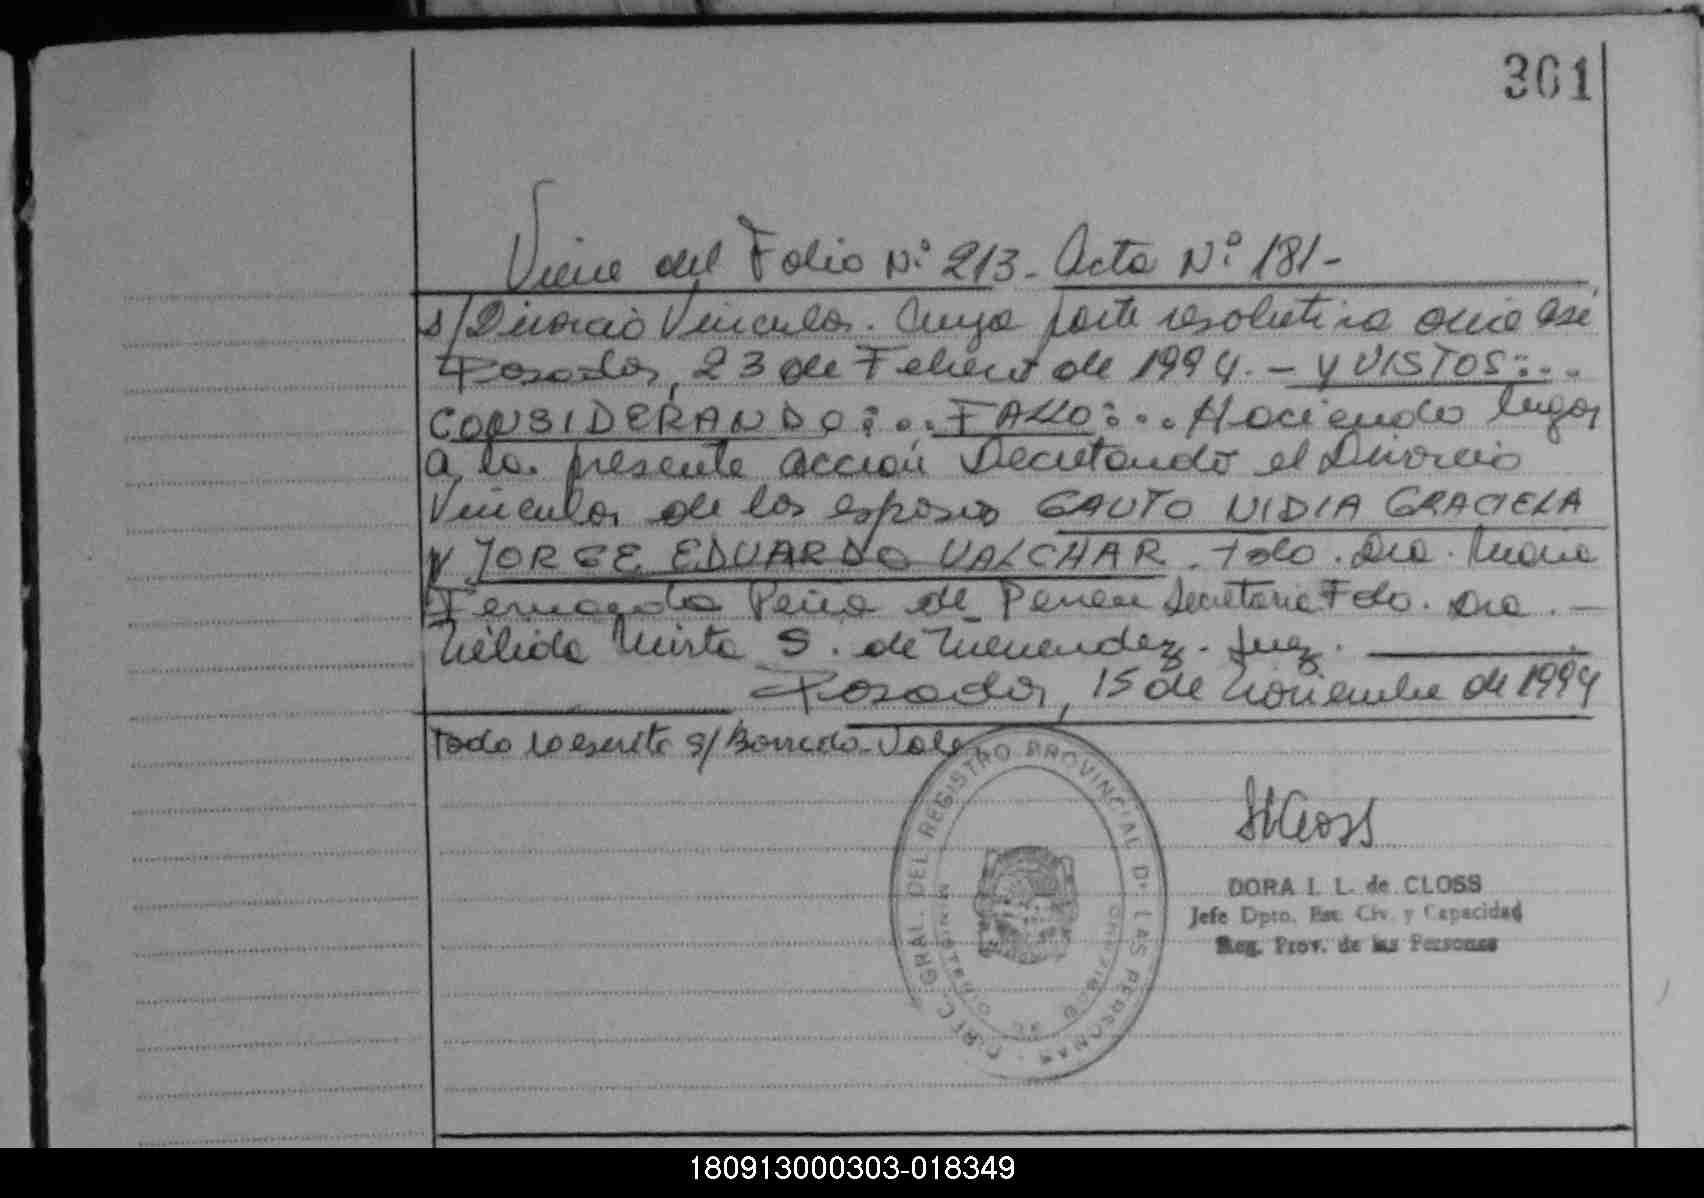 301
Viene del Folio Nº 213 - Acta Nº 181 -
s/Divorcio Vincular. Cuya parte resolutiva dice así
Posadas, 23 de Febrero de 1994. - Y VISTOS:..
CONSIDERANDO:.. FALLO:.. Haciendo lugar
a la presente acción Decretando el Divorcio
Vincular de los esposos GAUTO NIDIA GRACIELA
y JORGE EDUARDO VALCHAR. Fdo. Dra. María
Fernanda Peña de Secretaria Fdo. Dra. -
Nélida Mirta S. de Menendez. Juez.
Posadas, 15 de Noviembre de 1994
Todo lo escrito s/ Borrado - Vale
DIREC. GRAL. DEL REGISTRO PROVINCIAL DE LAS PERSONAS
DORA I. L. de CLOSS
Jefe Dpto. Est. Civ. y Capacidad
Reg. Prov. de las Personas
180913000303-018349